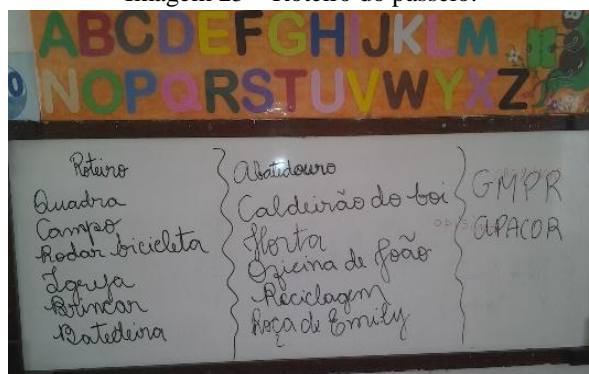 Imagem 23 – Roteiro do passeio.
ABCDEFGHIJKLM
NOPQRSTUVWYXZ
Roteiro
Quadra
Campo
Rodar bicicleta
Igreja
Brincar
Batedeira
Abatedouro
Caldeirão do boi
Horta
Oficina de João
Reciclagem
Roça de Emily
GMPR
APACOR